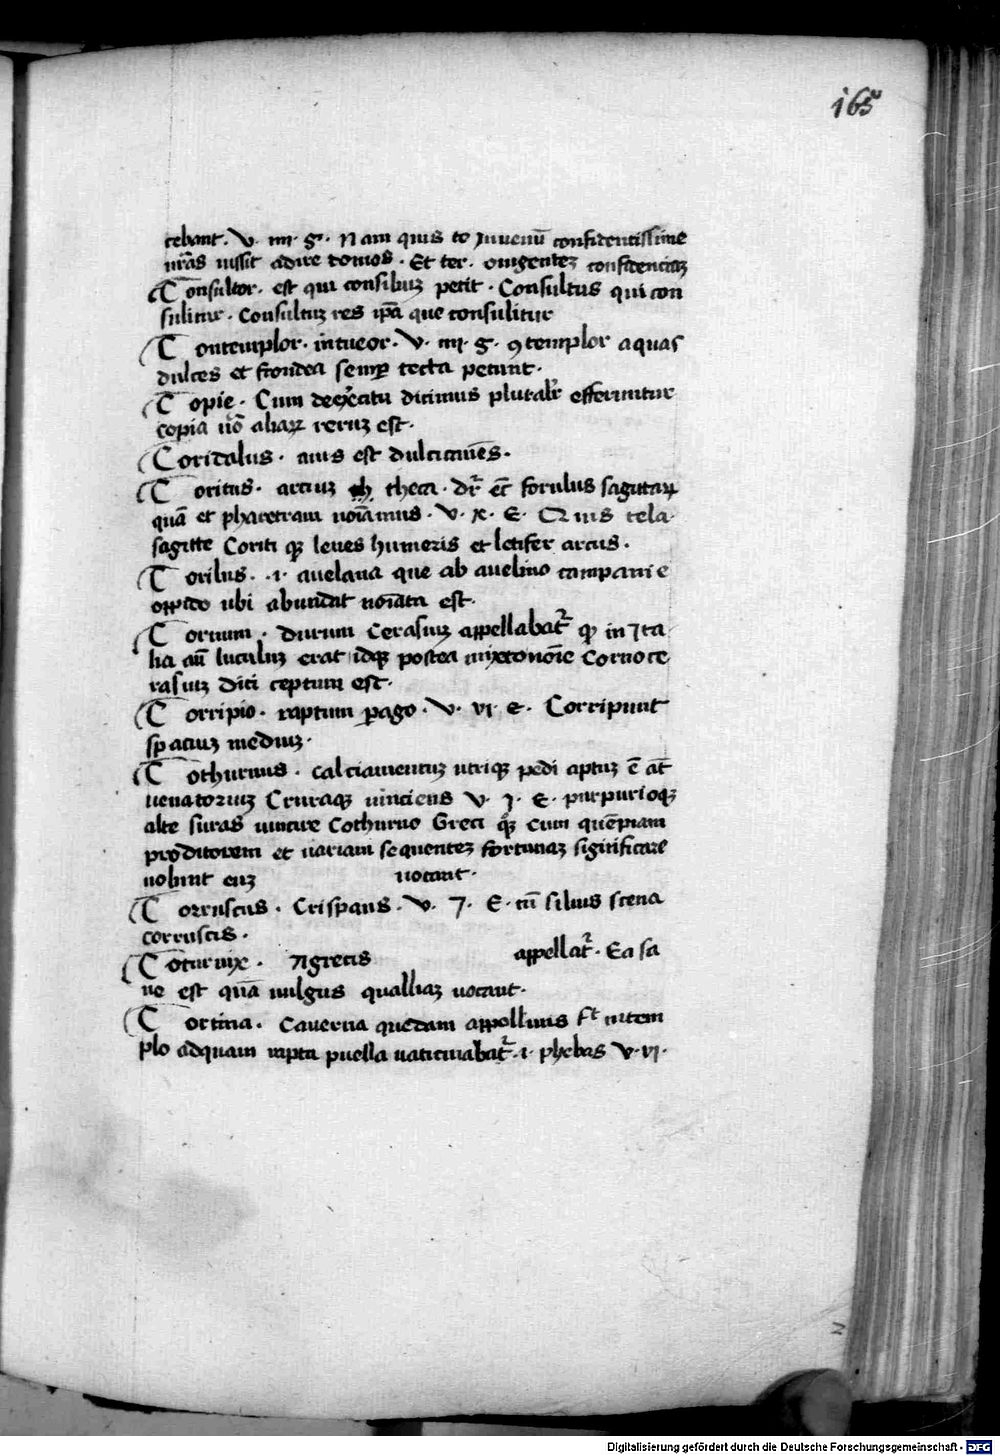 165
cebant. V. iiii. g. Nam quis te Iuuenū confidentissime
nr̄as iussit adire domos. Et ter. ouigentez confidenciaz
Consultor. est qui consiliuz petit. Consultus qui con
sulitur. Consultuz res ip̄a que consulitur
Contemplor. intueor. V. iiii. g. ꝯtemplor aquas
dulces et frondea semꝑ tecta petunt.
Copie. Cum de exercitu dicimus pluralr̄ efferuntur
copia uō aliaꝝ reruz est.
Coridalus. auis est dulcicanēs.
Coritus. arcuuz theca. dr̄ et̄ forulus sagittaꝝ
quā et pharetram noīamus. V. x. E. Quis tela
sagitte Coriti qꝫ leues humeris et letifer arcus.
Corilus. .i. auelana que ab auelino campanie
oppido ubi abundat noīata est.
Cornum. durum Cerasuz appellabat͛ qͦ in Ita
lia an̄ luculuz erat idqꝫ postea mixto noīe Corno ce
rasuz dici ceptum est.
Corripio. raptim ꝑago. V. vi. E. Corripiunt
spaciuz mediuz.
Cothurnus. calciamentuz utriqꝫ pedi aptuz ē at̄
uenatoriuz Cruraqꝫ uinciens V. I. E. purpurioqꝫ
alte suras uincire Cothurno Greci qꝫ cum quēpiam
proditorem et uariam sequentez fortunaz significare
uolunt euz uocant.
Corruscus. Crispans. V. I. E. tū siluis scena
corruscis.
Coturnix. A grecis appellat͛. Ea sa
ne est quā uulgus qualliaz uocant.
Cortina. Cauerna quedam appollinis fͭ in tem
plo ad quam rapta puella uaticinabat͛. i. phebas V. vi.
Digitalisierung gefördert durch die Deutsche Forschungsgemeinschaft - DFG